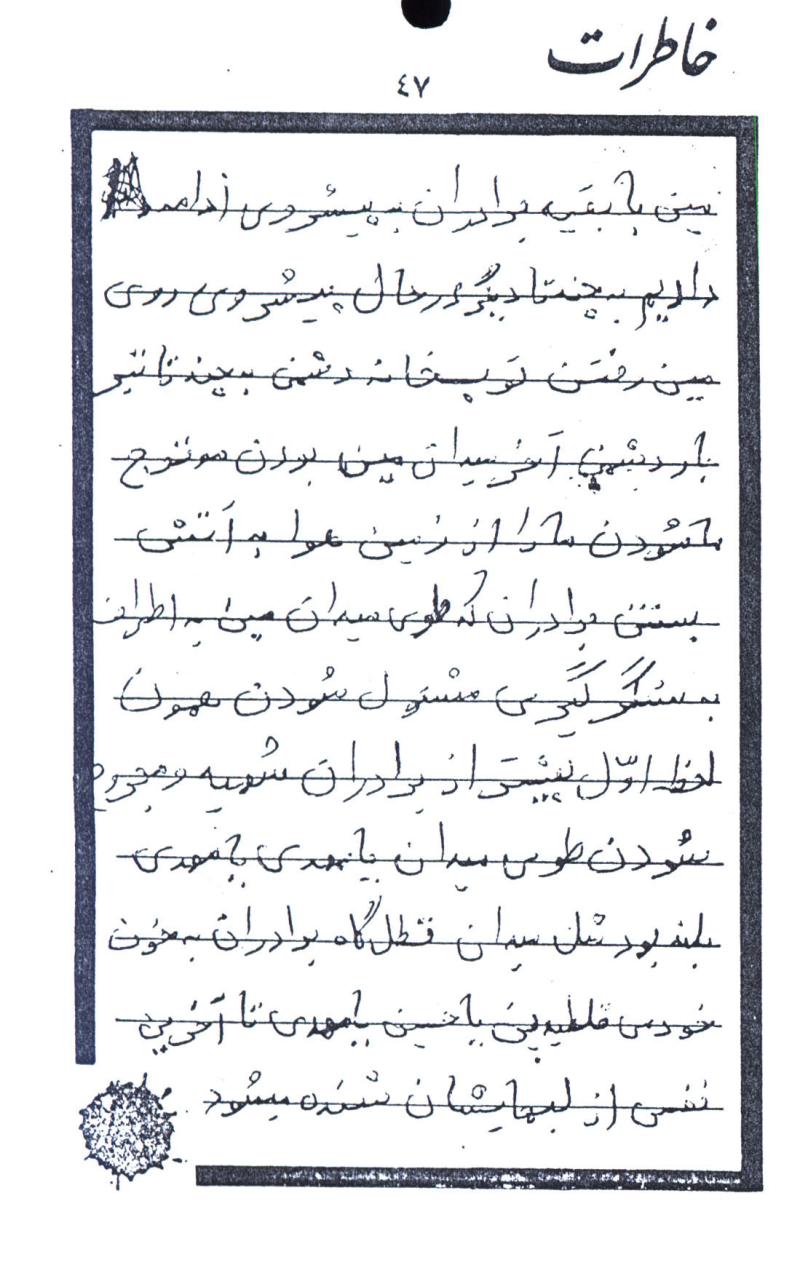 خاطرات
٤٧
مین با بقیه برادران به پیشروی ادامه
داریم به چندتا دیگر در حال پیشروی روی
مین رفتن توپخانه دشمن به چند تا تیر
بار دشمن آخر میدان مین بودن متوج
ما شودن ما را از زمین هوا به آتش
بستن برادران که طوی میدان مین به اطراف
به سنگر گیری مشغول شودن همون
لحظ اوّل بیشتر از برادران شهید و مجروح
شودن طوی میدان یا مهدی یا مهدی
بلند بود مثل میدان قطل گاه برادران به خون
خودس قلطیدین یا حسین یا مهدی تا آخرین
نفس از لبهایشان شنده میشود